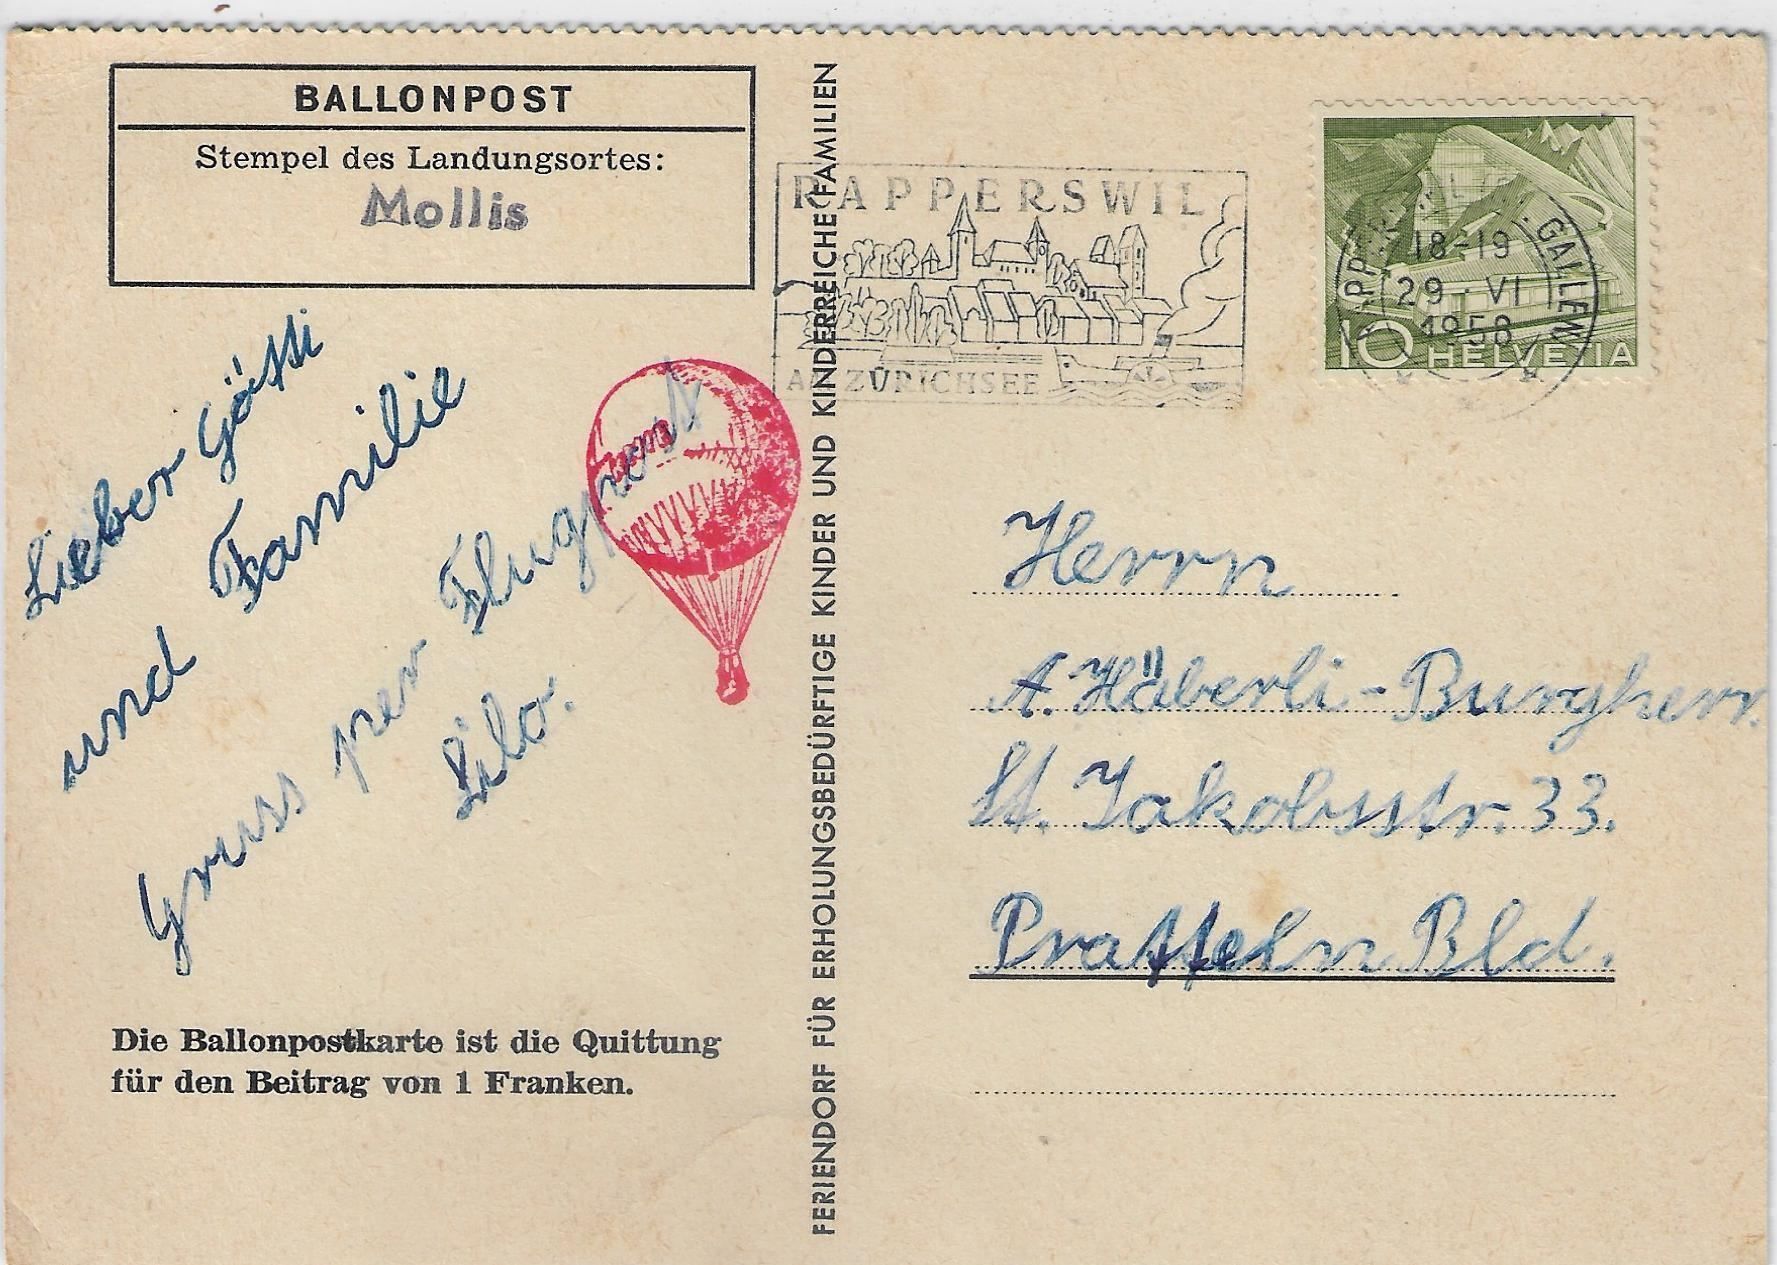 BALLONPOST
Stempel des Landungsortes:
Mollis
RAPPERSWIL
AM ZÜRICHSEE
18-19
29. VI
1958
10 HELVETIA
Lieber Götti
und Familie
Gruss per Flugpost
Die Ballonpostkarte ist die Quittung
für den Beitrag von 1 Franken.
FERIENDORF FÜR ERHOLUNGSBEDÜRFTIGE KINDER UND KINDERREICHE FAMILIEN
Herrn
A. Häberli-Burgherr.
St. Jakobsstr. 33.
Pratteln Bld.